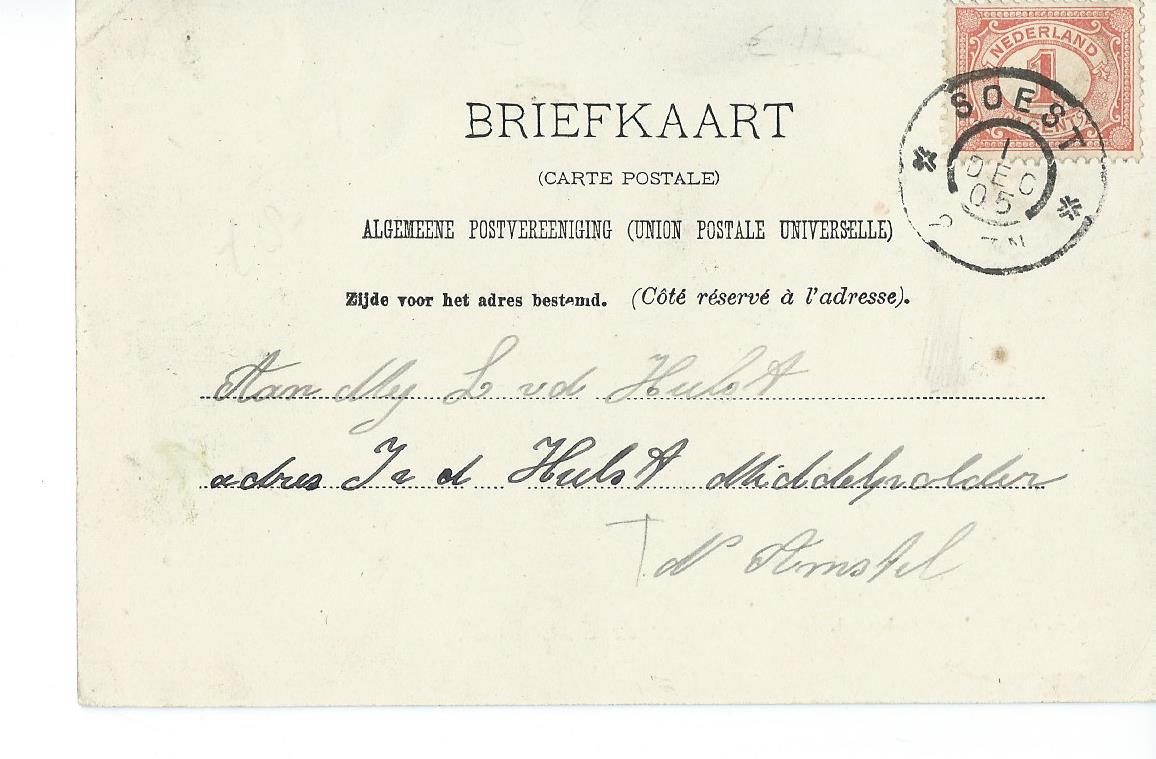 NEDERLAND
1
CENT
SOEST
1
DEC
05
BRIEFKAART
(CARTE POSTALE)
ALGEMEENE POSTVEREENIGING (UNION POSTALE UNIVERSELLE)
Zijde voor het adres bestemd. (Côté réservé à l'adresse).
Aan Mej L vd Hulst
adres J v d Hulst Middelpolder
Amstel